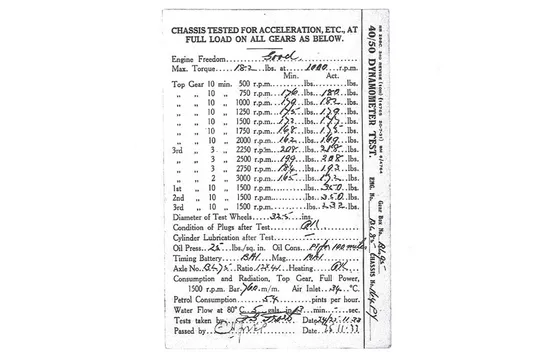 CHASSIS TESTED FOR ACCELERATION, ETC., AT
FULL LOAD ON ALL GEARS AS BELOW.
Engine Freedom Good
Max. Torque 182 lbs. at 1000 r.p.m.
Min. Act.
Top Gear 10 min. 500 r.p.m. lbs. lbs.
„ „ 10 „ 750 r.p.m. 176 lbs. 180 lbs.
„ „ 10 „ 1000 r.p.m. 179 lbs. 182 lbs.
„ „ 10 „ 1250 r.p.m. 175 lbs. 179 lbs.
„ „ 10 „ 1500 r.p.m. 172 lbs. 177 lbs.
„ „ 10 „ 1750 r.p.m. 168 lbs. 175 lbs.
„ „ 10 „ 2000 r.p.m. 162 lbs. 169 lbs.
3rd „ 3 „ 2250 r.p.m. 208 lbs. 218 lbs.
„ „ 3 „ 2500 r.p.m. 199 lbs. 208 lbs.
„ „ 3 „ 2750 r.p.m. 184 lbs. 193 lbs.
„ „ 2 „ 3000 r.p.m. 165 lbs. 172 lbs.
1st „ 10 „ 1500 r.p.m. lbs. 350 lbs.
2nd „ 10 „ 1500 r.p.m. lbs. 350 lbs.
3rd „ 10 „ 1500 r.p.m. lbs. 232 lbs.
Diameter of Test Wheels 32.5 ins.
Condition of Plugs after Test OK
Cylinder Lubrication after Test —
Oil Press. 25 lbs./sq. in. Oil Cons.
Timing Battery Mag.
Axle No. Ratio Heating OK
Consumption and Radiation, Top Gear, Full Power,
1500 r.p.m. Bar. 760 m/m. Air Inlet 34 °C.
Petrol Consumption 54 pints per hour.
Water Flow at 80° C. 5 gals. in 13 min. — sec.
Tests taken by Date
Passed by Date
40/50 DYNAMOMETER TEST.
ENG. No. Gear Box No. CHASSIS No.